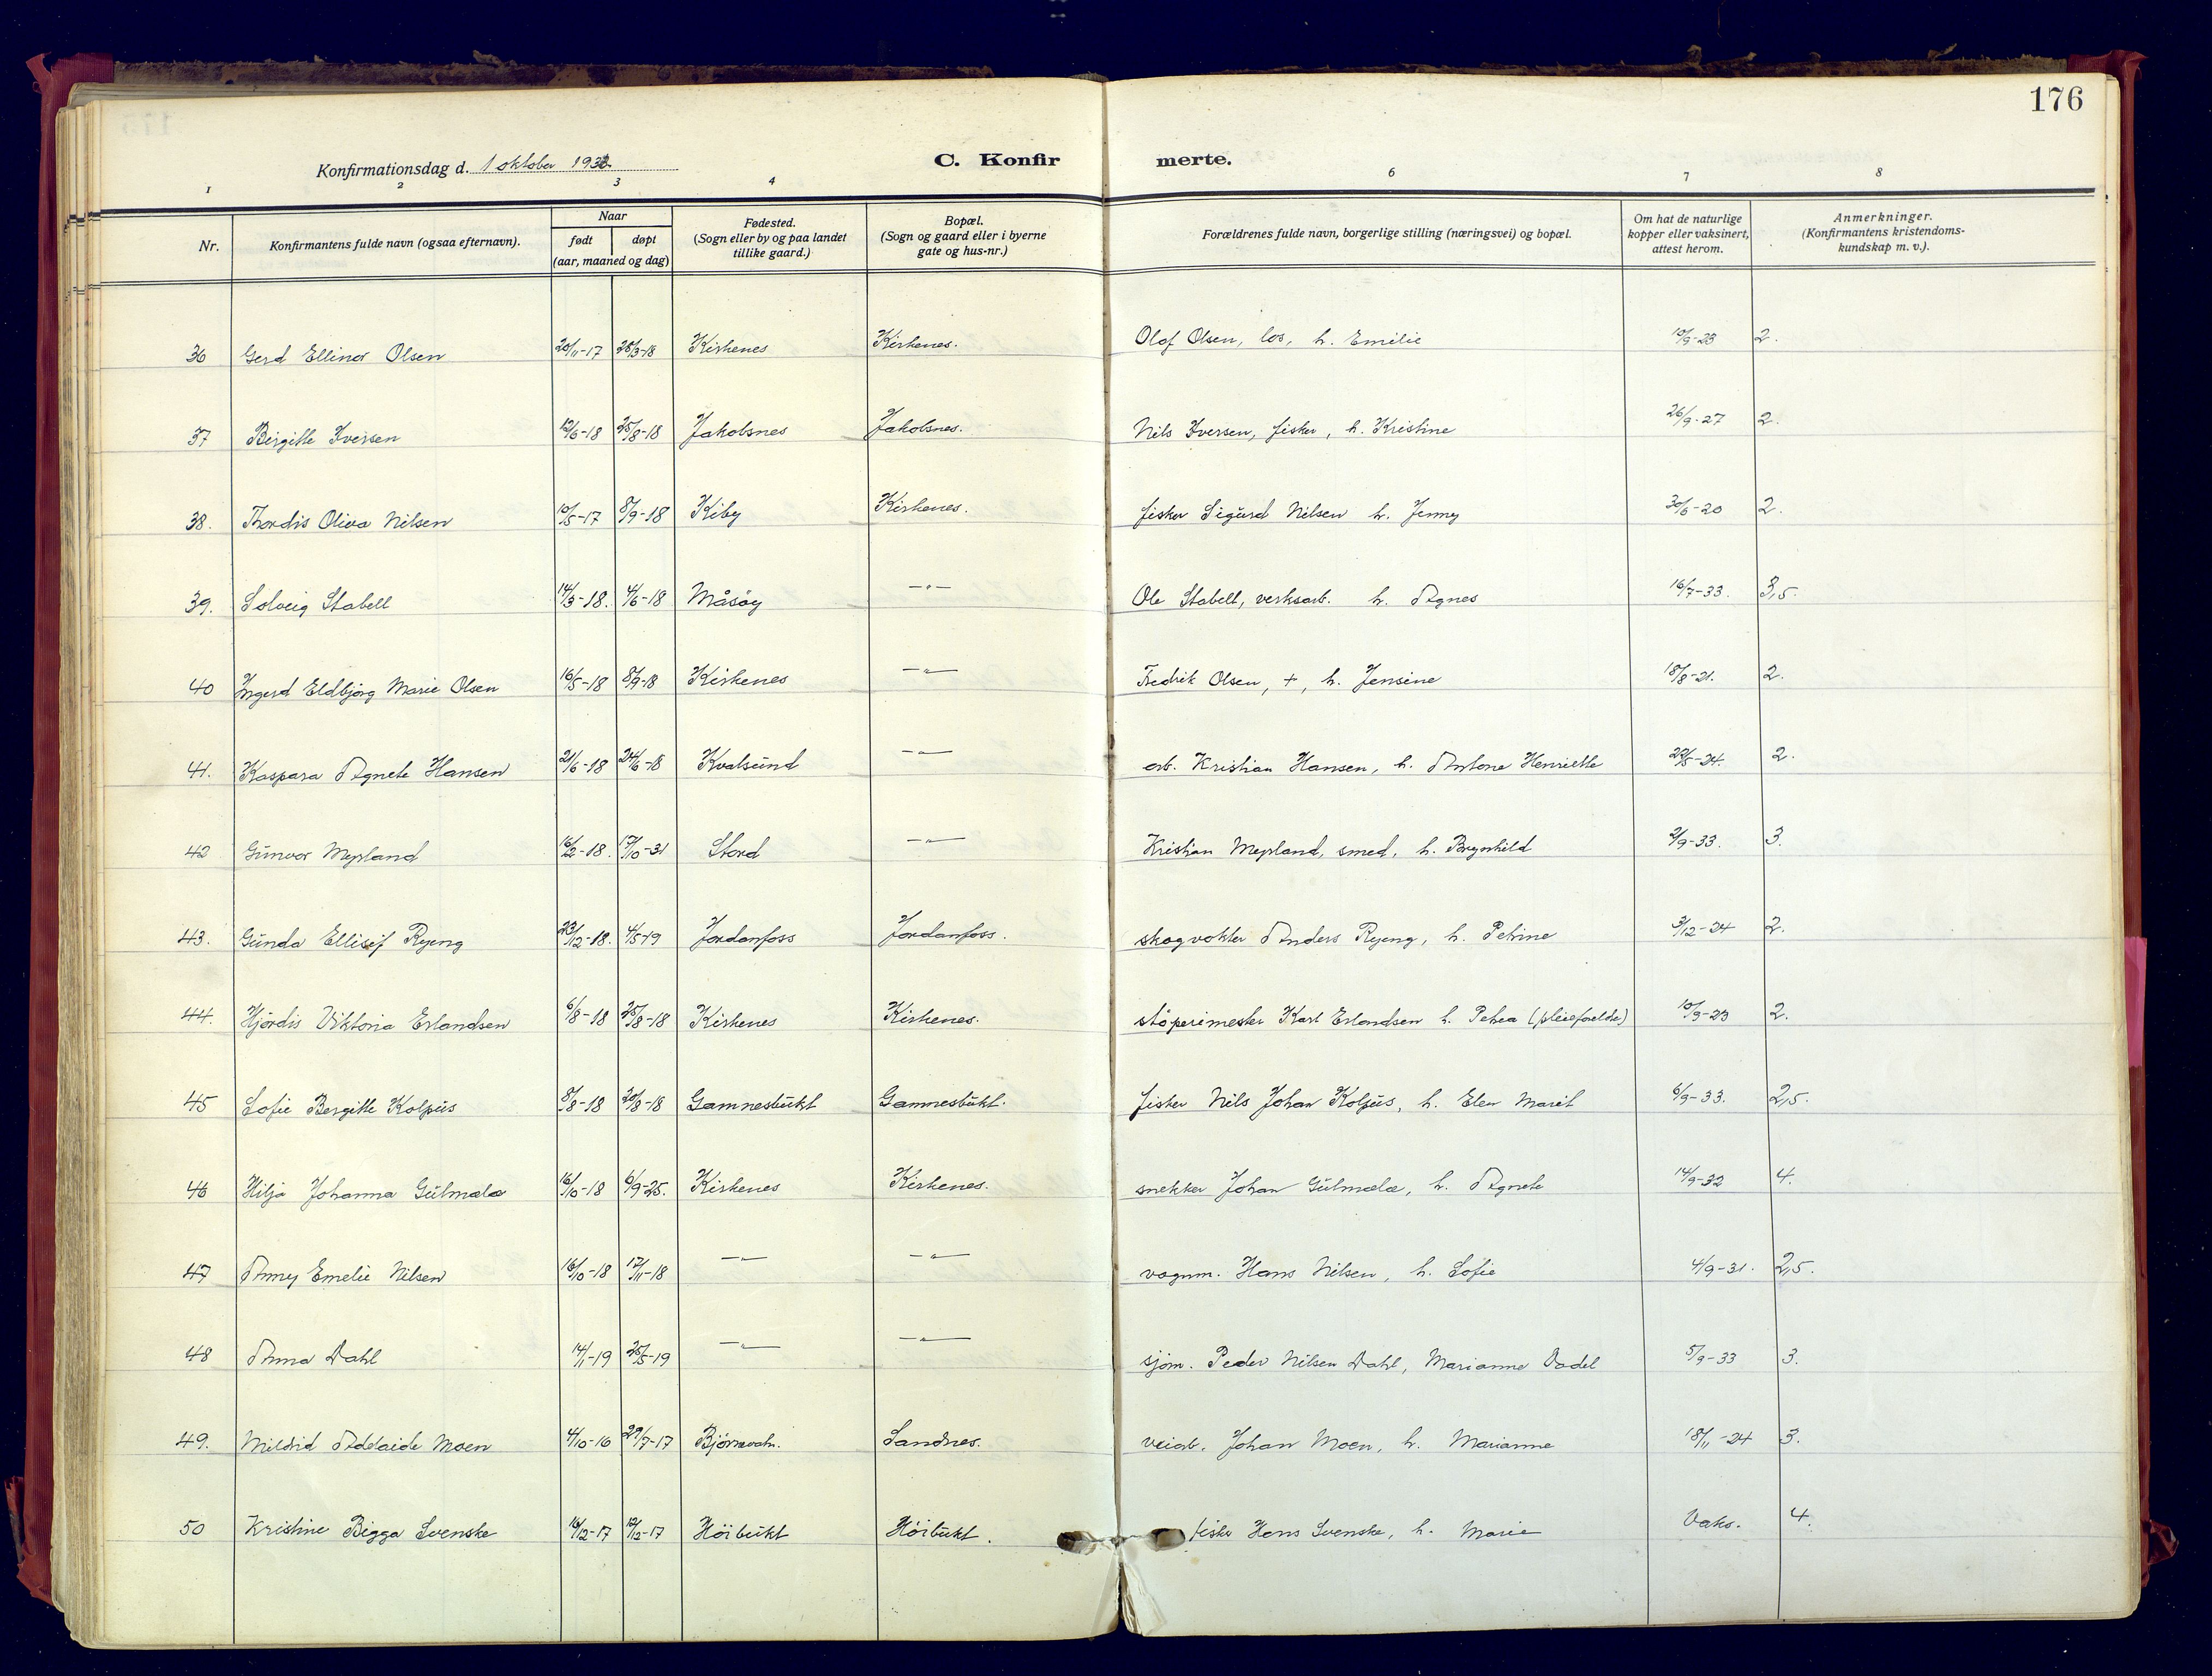 176
Konfirmationsdag d. 1 oktober 1933. C. Konfirmerte.
1 2 3 4 6 7 8
Nr. Konfirmantens fulde navn (ogsaa efternavn). Naar født døpt (aar, maaned og dag) Fødested. (Sogn eller by og paa landet tillike gaard.) Bopæl. (Sogn og gaard eller i byerne gate og hus-nr.) Forældrenes fulde navn, borgerlige stilling (næringsvei) og bopæl. Om hat de naturlige kopper eller vaksinert, attest herom. Anmerkninger. (Konfirmantens kristendoms-kundskap m. v.).
36 Gerd Ellinor Olsen 20/11-17 28/3-18 Kirkenes Kirkenes. Olof Olsen, los, h. Emilie 10/9-23 2.
37 Birgitte Iversen 12/6-18 25/8-18 Jakobsnes Jakobsnes. Nils Iversen, fisker, h. Kristine 26/9-27 2.
38. Thordis Oliva Nilsen 10/5-17 8/9-18 Kiby Kirkenes. fisker Sigurd Nilsen h. Jenny 30/6-20 2.
39. Solveig Stabell 14/3-18. 4/6-18 Måsøy —"— Ole Stabell, verksarb. h. Agnes 16/7-33. 3,5.
40 Ingerd Eldbjørg Marie Olsen 16/5-18 8/9-18 Kirkenes —"— Fredrik Olsen, +, h. Jensine 18/8-21. 2.
41. Kaspara Agnete Hansen 21/6-18 24/6-18 Kvalsund —"— arb. Kristian Hansen, h. Antone Henriette 22/5-24. 2.
42 Gunvor Mepland 16/2-18. 17/10-31 Stord —"— Kristian Mepland, smed, h. Brynhild 2/9-33. 3.
43. Gunda Ellisif Ryeng 23/12-18. 4/5-19 Jordanfoss Jordanfoss. skogvokter Anders Ryeng, h. Petrine 3/12-24 2.
44. Hjördis Viktoria Erlandsen 6/8-18 25/8-18 Kirkenes Kirkenes. støperimester Karl Erlandsen h. Petrea (pleieforeldre) 10/9-23 2.
45 Sofie Bergitte Kolpus 8/8-18 20/8-18 Gamnesbukt Gamnesbukt. fisker Nils Johan Kolpus, h. Elen Marit 6/9-33. 2,5.
46 Hilja Johanna Gulmala 16/10-18 6/9-25. Kirkenes Kirkenes. snekker Johan Gulmala, h. Agnete 14/9-32 4.
47 Anny Emelie Nilsen 16/10-18 17/11-18 —"— —"— vognm. Hans Nilsen, h. Sofie 4/9-31. 2,5.
48 Anna Dahl 14/1-19 25/5-19 —"— —"— sjöm. Peder Nilsen Dahl, Marianne Vadel 5/9-33 3.
49. Mildrid Adelaide Moen 4/10-16 29/7-17 Björnevatn. Sandnes. veiarb. Johan Moen, h. Marianne 18/11-24 3.
50 Kristine Bigga Svenske 16/12-17 19/12-17 Höibukt Höibukt. fisker Hans Svenske, h. Marie Vaks. 4.